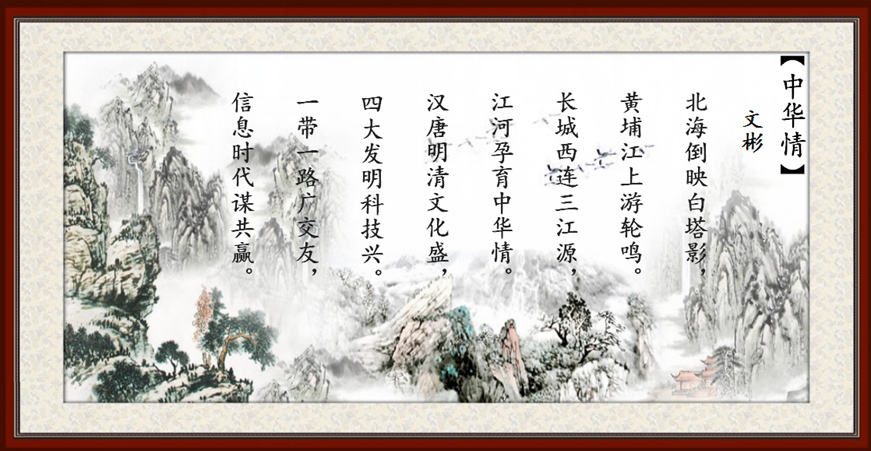 【中华情】
文彬
北海倒映白塔影，
黄埔江上游轮鸣。
长城西连三江源，
江河孕育中华情。
汉唐明清文化盛，
四大发明科技兴。
一带一路广交友，
信息时代谋共赢。